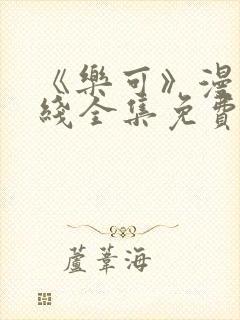 《樂可》漫
綫全集免費
蘆葦海